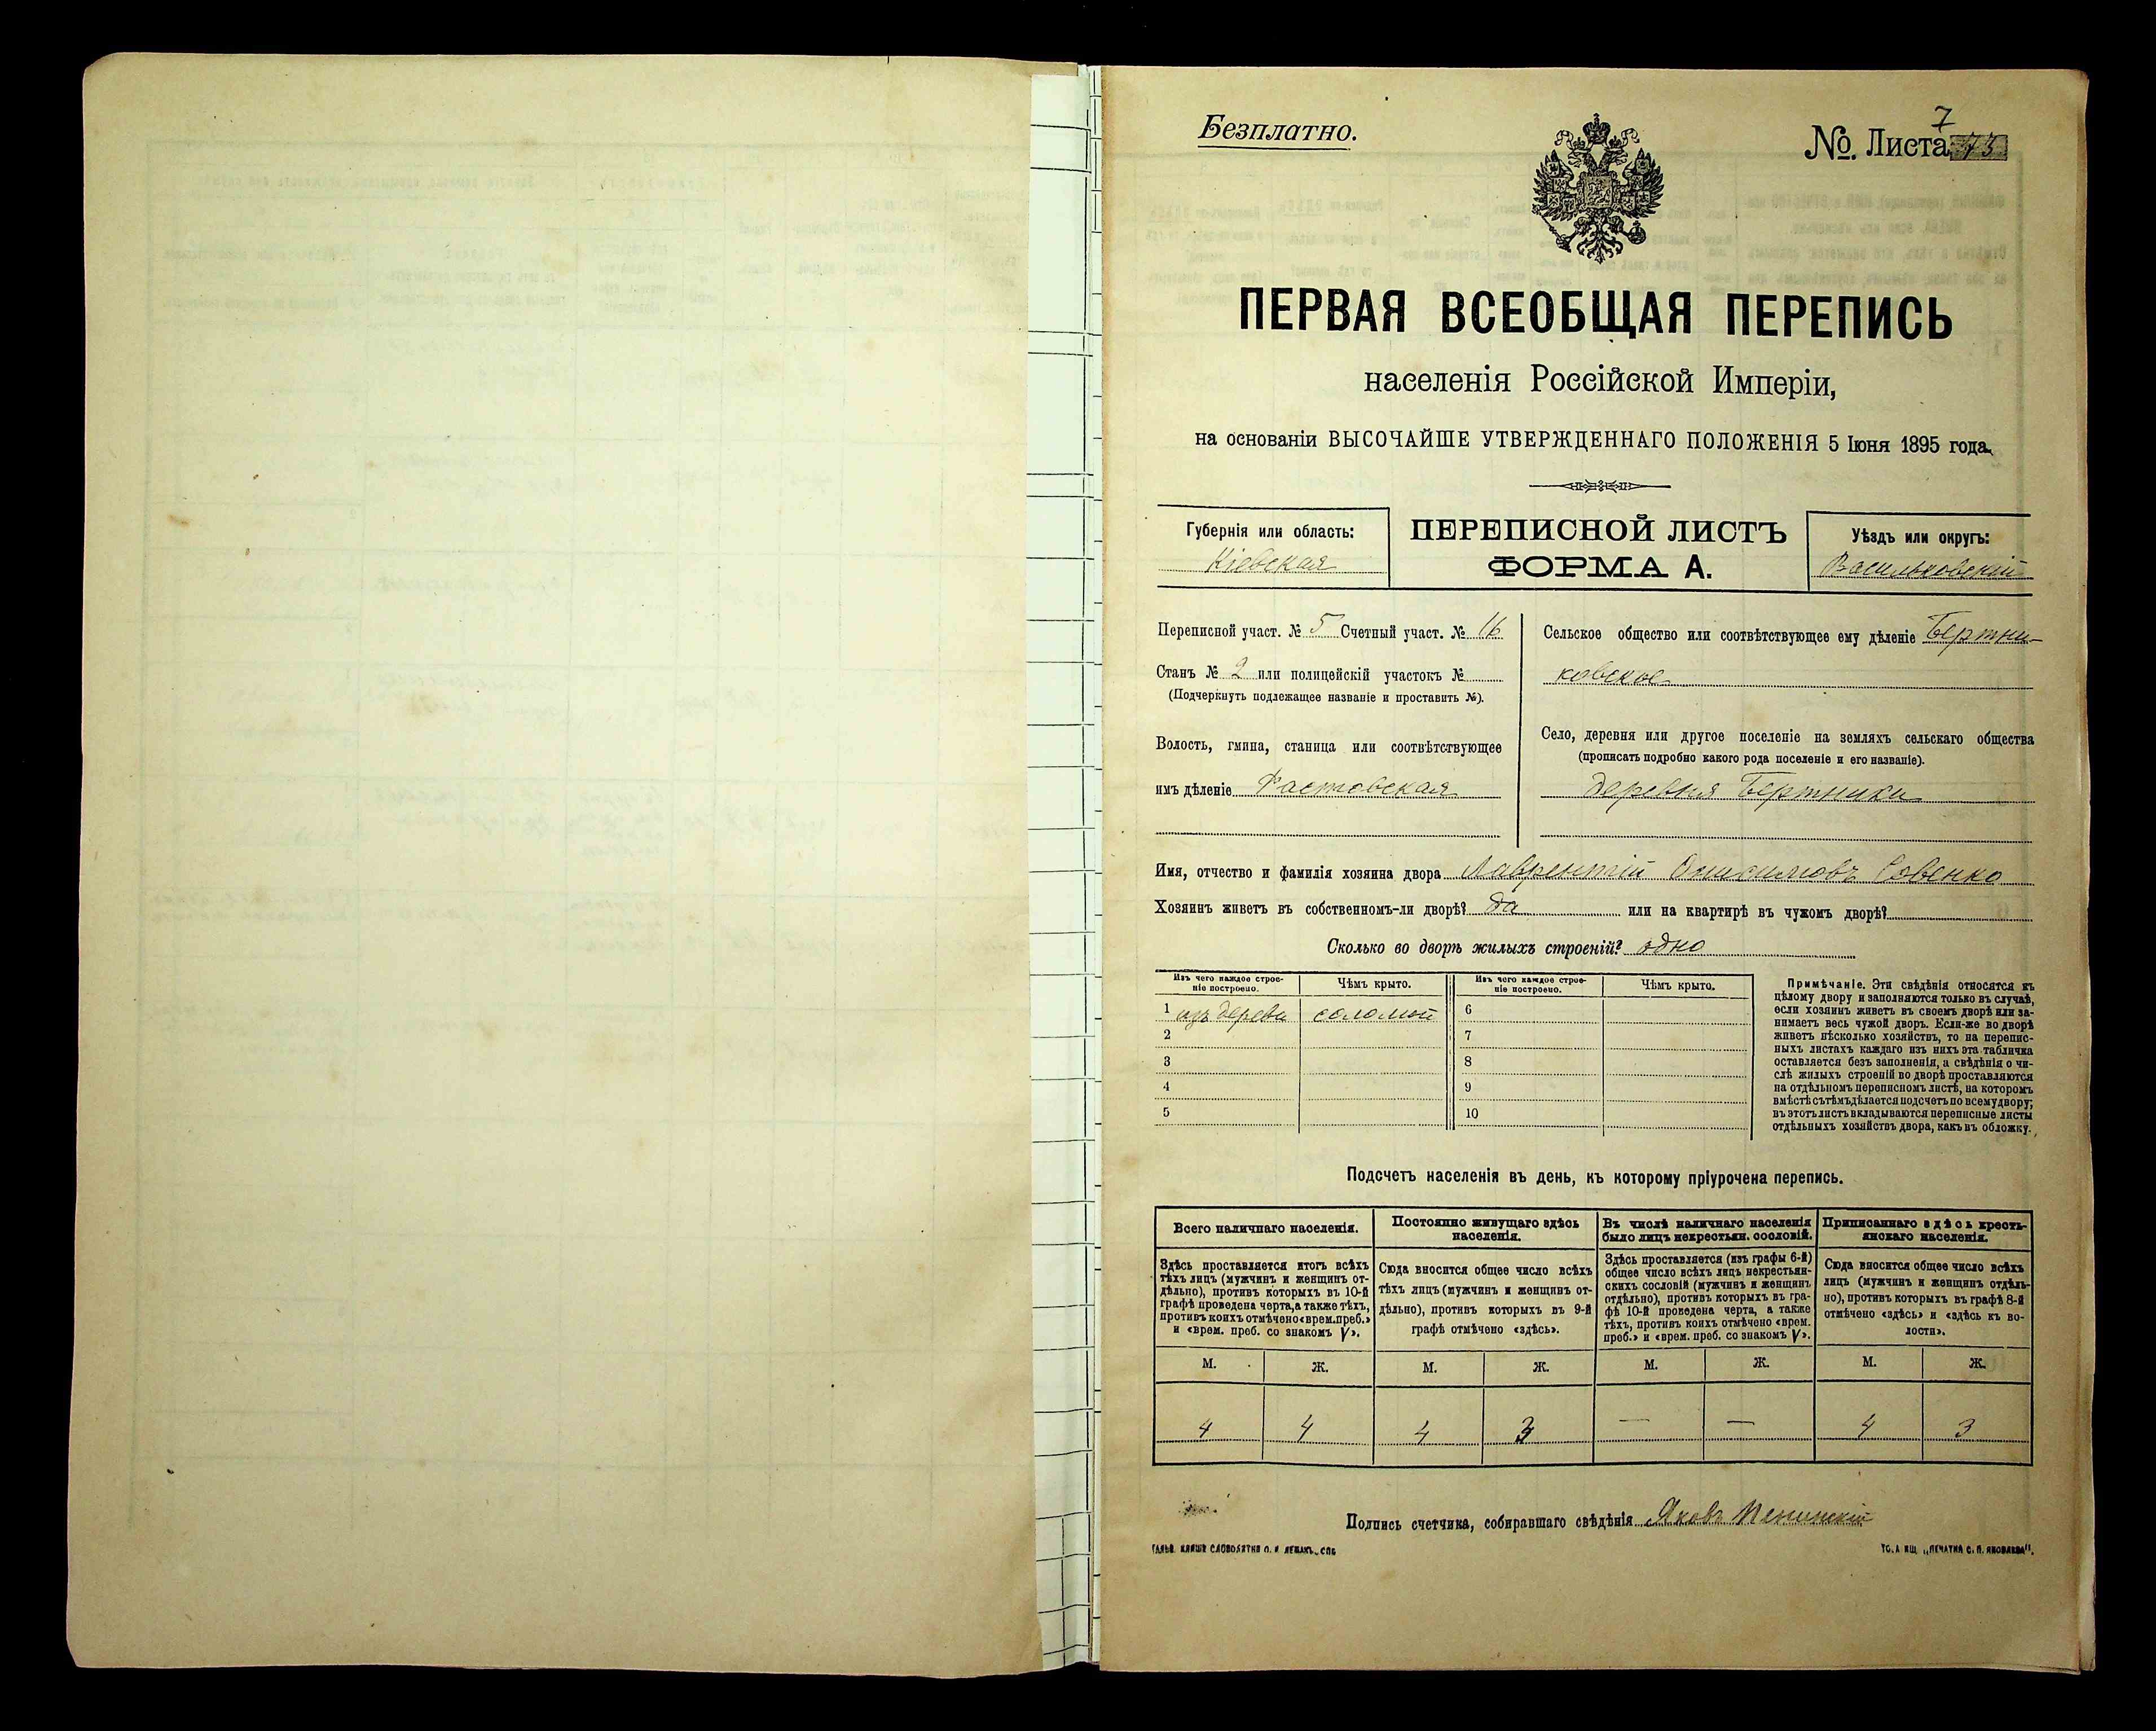 Безплатно.
7
№. Листа 73
ПЕРВАЯ ВСЕОБЩАЯ ПЕРЕПИСЬ
населенія Россійской Имперіи,
на основаніи ВЫСОЧАЙШЕ УТВЕРЖДЕННАГО ПОЛОЖЕНІЯ 5 Іюня 1895 года.
Губернія или область:
Кіевская
ПЕРЕПИСНОЙ ЛИСТЪ
ФОРМА А.
Уѣздъ или округъ:
Васильковскій
Переписной участ. № 5 Счетный участ. № 16
Станъ № 2 или полицейскій участокъ №
(Подчеркнуть подлежащее названіе и проставить №).
Волость, гмина, станица или соотвѣтствующее
имъ дѣленіе Фастовская
Сельское общество или соотвѣтствующее ему дѣленіе Бертни-
ковское
Село, деревня или другое поселеніе на земляхъ сельскаго общества
(прописать подробно какого рода поселеніе и его названіе).
деревня Бертники
Имя, отчество и фамилія хозяина двора Лаврентій Онисимовъ Совенко
Хозяинъ живетъ въ собственномъ-ли дворѣ? да или на квартирѣ въ чужомъ дворѣ?
Сколько во дворѣ жилыхъ строеній? одно
Изъ чего каждое строе-
ніе построено.
Чѣмъ крыто.
Изъ чего каждое строе-
ніе построено.
Чѣмъ крыто.
1 изъ дерева соломой 6
2 7
3 8
4 9
5 10
Примѣчаніе. Эти свѣдѣнія относятся къ
цѣлому двору и заполняются только въ случаѣ,
если хозяинъ живетъ въ своемъ дворѣ или за-
нимаетъ весь чужой дворъ. Если-же во дворѣ
живетъ нѣсколько хозяйствъ, то на перепис-
ныхъ листахъ каждаго изъ нихъ эта табличка
оставляется безъ заполненія, а свѣдѣнія о чи-
слѣ жилыхъ строеній во дворѣ проставляются
на отдѣльномъ переписномъ листѣ, на которомъ
вмѣстѣ съ тѣмъ дѣлается подсчетъ по всему двору;
въ этотъ листъ вкладываются переписные листы
отдѣльныхъ хозяйствъ двора, какъ въ обложку.
Подсчетъ населенія въ день, къ которому пріурочена перепись.
Всего наличнаго населенія.
Здѣсь проставляется итогъ всѣхъ
тѣхъ лицъ (мужчинъ и женщинъ от-
дѣльно), противъ которыхъ въ 10-й
графѣ проведена черта, а также тѣхъ,
противъ коихъ отмѣчено «врем. преб.»
и «врем. преб. со знакомъ V».
Постоянно живущаго здѣсь
населенія.
Сюда вносится общее число всѣхъ
тѣхъ лицъ (мужчинъ и женщинъ от-
дѣльно), противъ которыхъ въ 9-й
графѣ отмѣчено «здѣсь».
Въ числѣ наличнаго населенія
было лицъ некрестьян. сословій.
Здѣсь проставляется (изъ графы 6-й)
общее число всѣхъ лицъ некрестьян-
скихъ сословій (мужчинъ и женщинъ
отдѣльно), противъ которыхъ въ гра-
фѣ 10-й проведена черта, а также
тѣхъ, противъ коихъ отмѣчено «врем.
преб.» и «врем. преб. со знакомъ V».
Приписаннаго здѣсь кресть-
янскаго населенія.
Сюда вносится общее число всѣхъ
лицъ (мужчинъ и женщинъ отдѣль-
но), противъ которыхъ въ графѣ 8-й
отмѣчено «здѣсь» и «здѣсь къ во-
лости».
М. Ж. М. Ж. М. Ж. М. Ж.
4 4 4 3 — — 4 3
Подпись счетчика, собиравшаго свѣдѣнія Яковъ